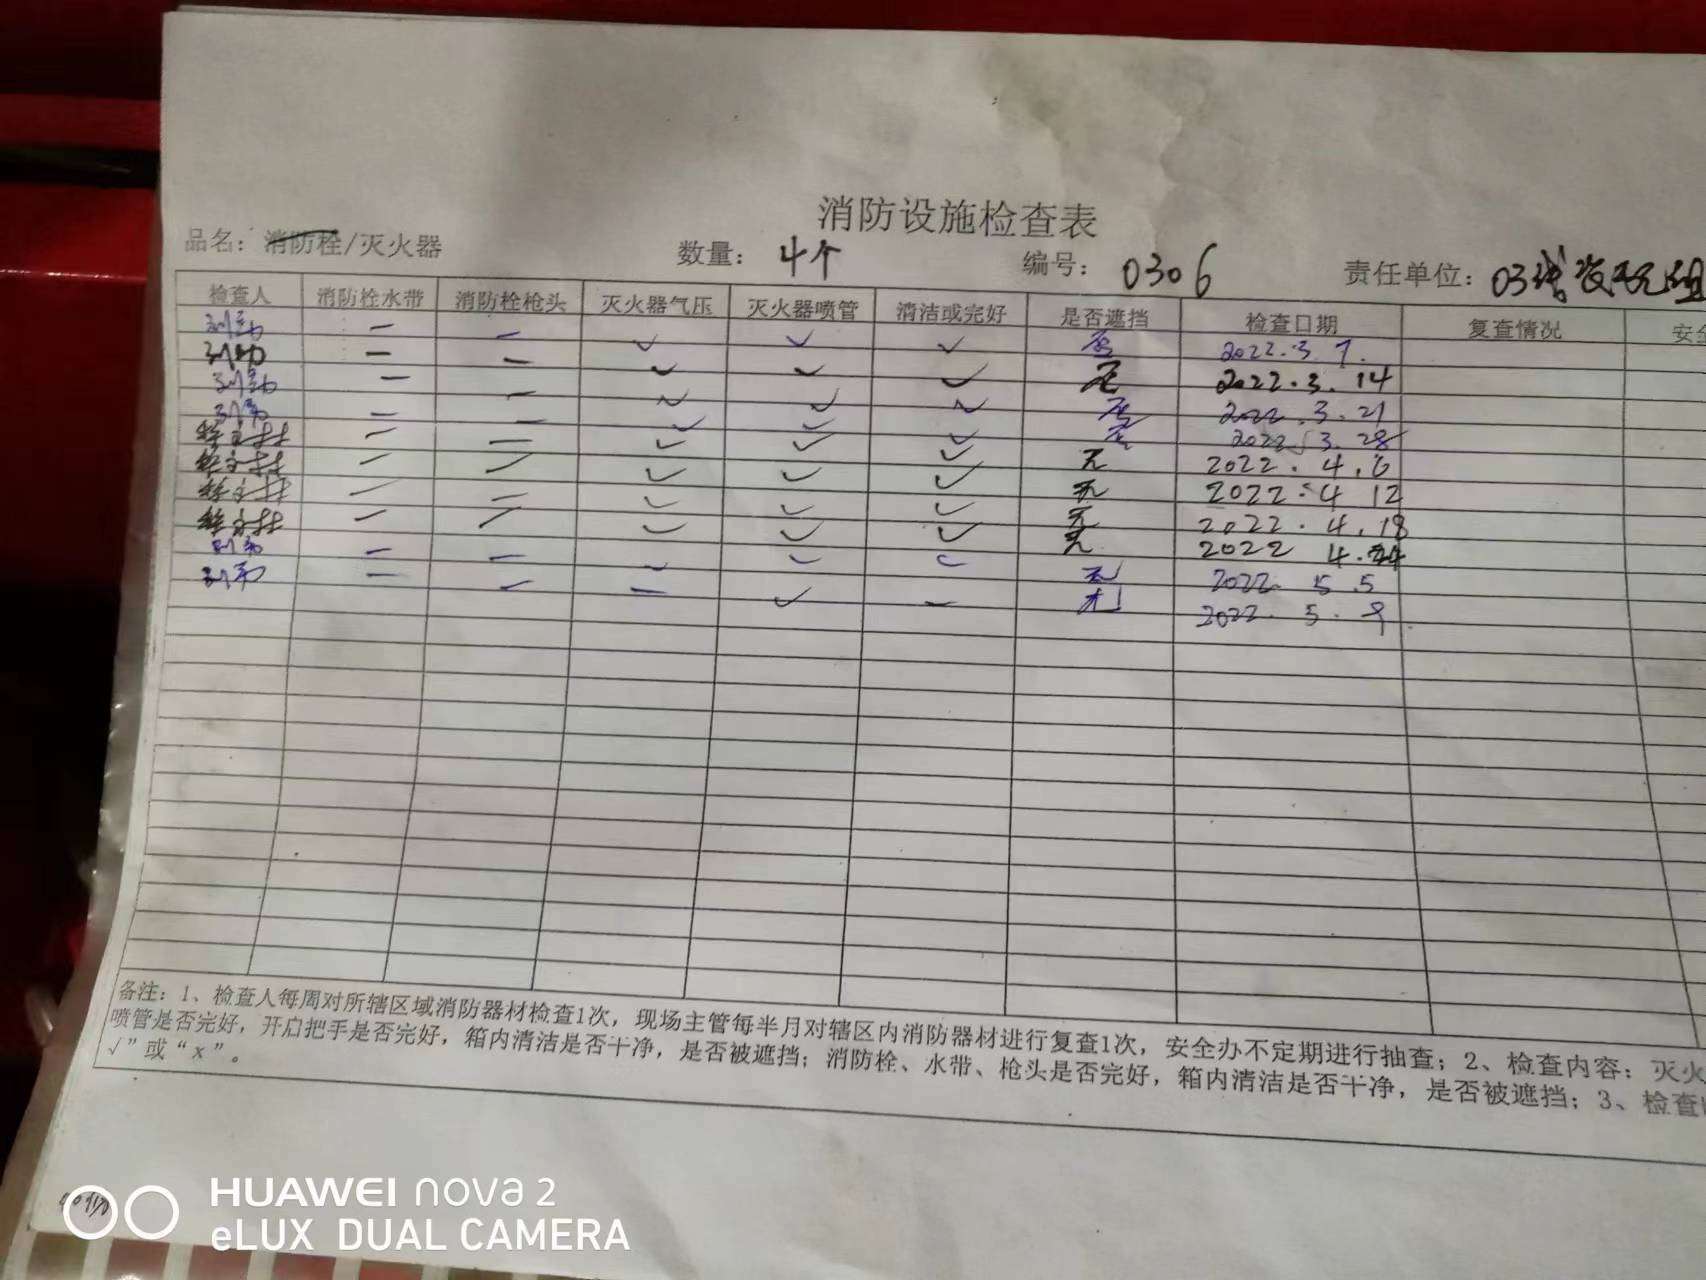 消防设施检查表
品名：消防栓/灭火器 数量：4个 编号：0306 责任单位：03线
检查人 消防栓水带 消防栓枪头 灭火器气压 灭火器喷管 清洁或完好 是否遮挡 检查日期 复查情况 安全
— — ✓ ✓ ✓ 否 2022.3.7.
— — ✓ ✓ ✓ 无 2022.3.14
— — ✓ ✓ ✓ 否 2022.3.21
— — ✓ ✓ ✓ 否 2022.3.28
— — ✓ ✓ ✓ 无 2022.4.6
— — ✓ ✓ ✓ 无 2022.4 12
— — ✓ ✓ ✓ 无 2022.4.18
— — ✓ ✓ ✓ 无 2022 4.24
— — ✓ ✓ ✓ 无 2022. 5.5
— — — ✓ — 2022. 5. 9
备注：1、检查人每周对所辖区域消防器材检查1次，现场主管每半月对辖区内消防器材进行复查1次，安全办不定期进行抽查；2、检查内容：灭火
喷管是否完好，开启把手是否完好，箱内清洁是否干净，是否被遮挡；消防栓、水带、枪头是否完好，箱内清洁是否干净，是否被遮挡；3、检查
√”或“x”。
HUAWEI nova 2
eLUX DUAL CAMERA